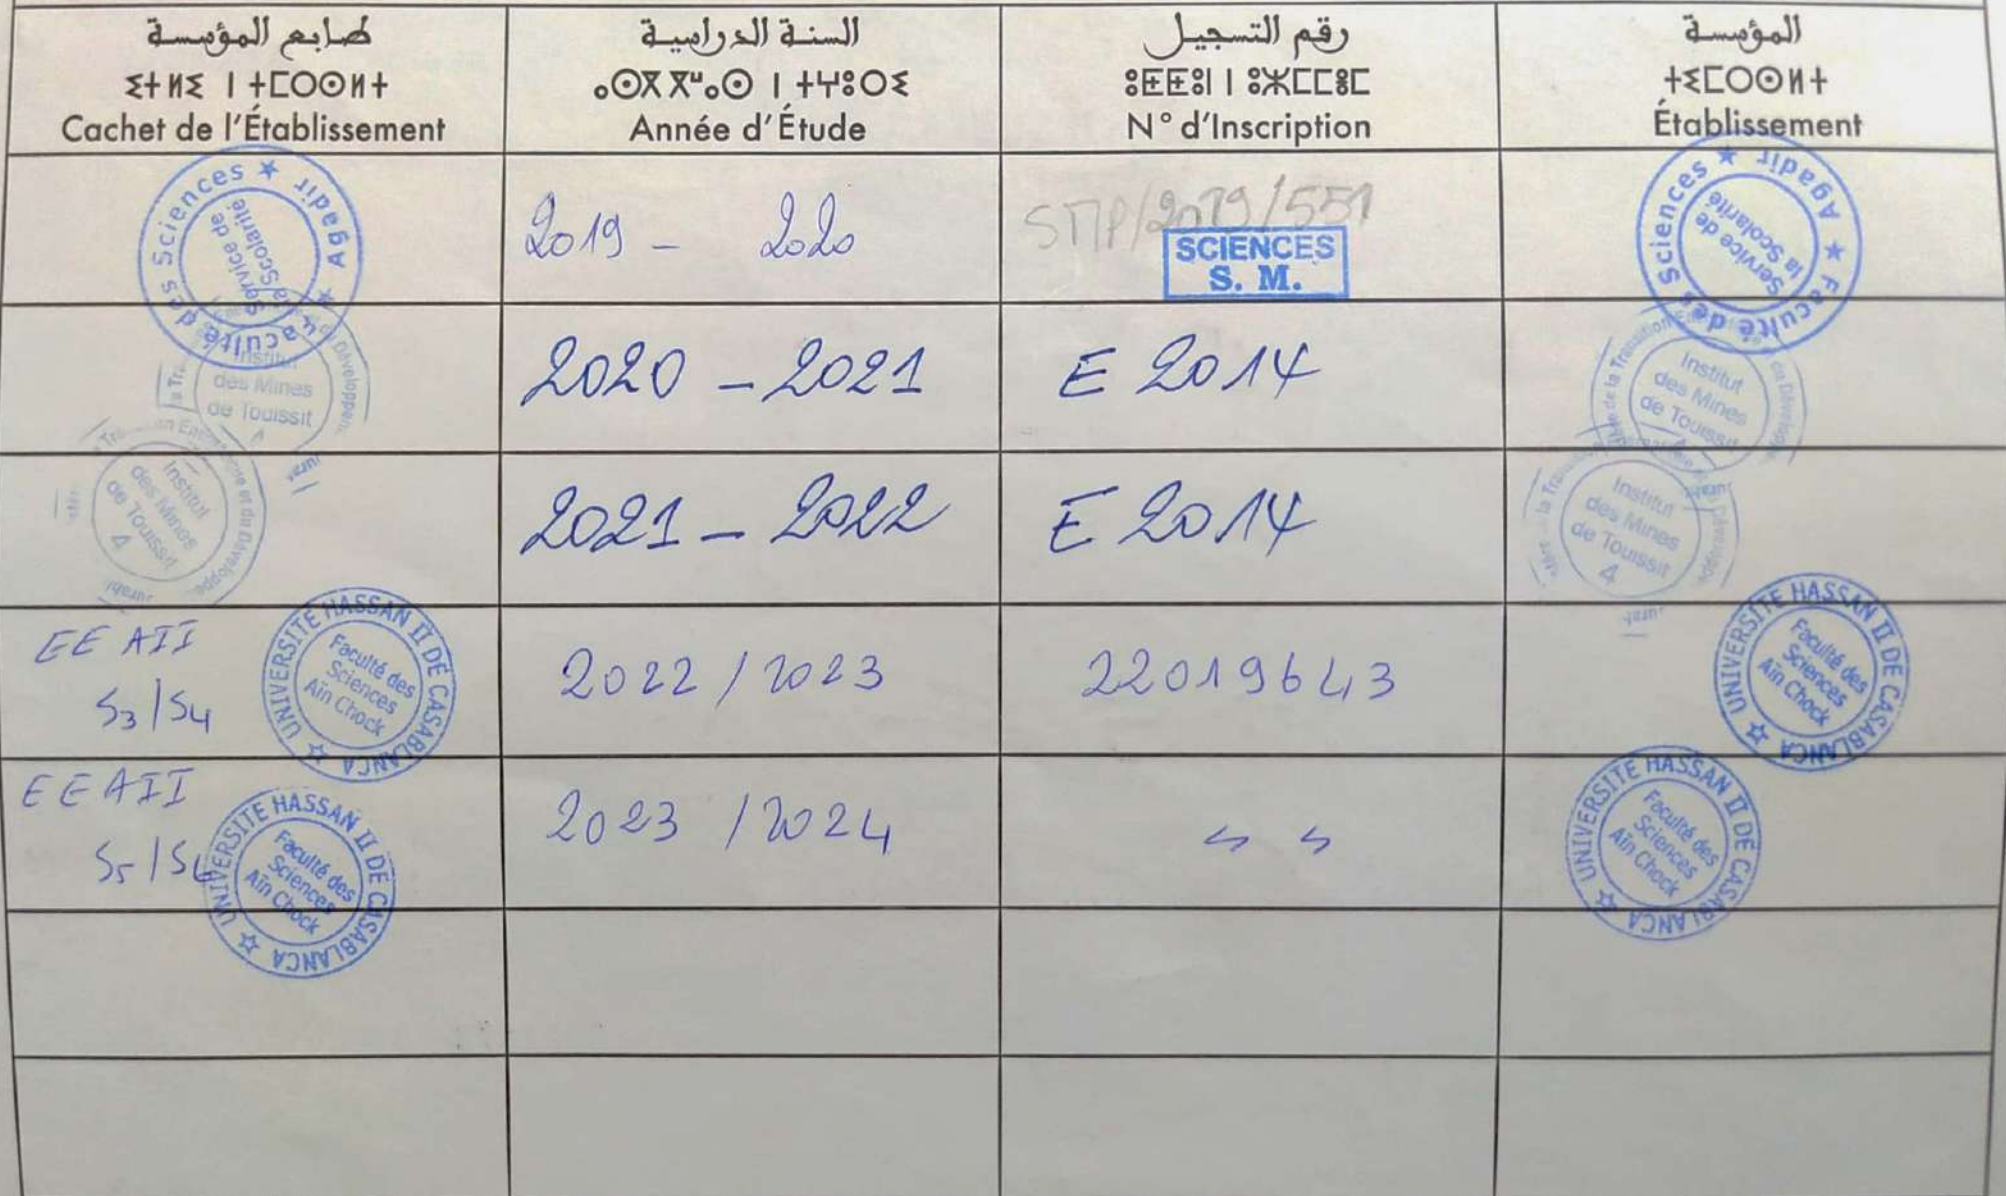 طابع المؤسسة
ⵉⵜⵍⵉ ⵏ ⵜⵎⵙⵙⵍⵜ
Cachet de l'Établissement
السنة الدراسية
ⴰⵙⴳⴳⵯⴰⵙ ⵏ ⵜⵖⵓⵔⵉ
Année d'Étude
رقم التسجيل
ⵓⵟⵟⵓⵏ ⵏ ⵓⵣⵎⵎⵓⵎ
N° d'Inscription
المؤسسة
ⵜⵉⵎⵙⵙⵍⵜ
Établissement
Faculté des Sciences ★ Agadir ★
Service de
la Scolarité
2019 - 2020
STIP/2019/551
SCIENCES
S. M.
Faculté des Sciences ★ Agadir ★
Service de
la Scolarité
Institut
des Mines
de Touissit
2020 - 2021
E 2014
Institut
des Mines
de Touissit
Institut
des Mines
de Touissit
4
2021 - 2022
E 2014
Institut
des Mines
de Touissit
4
EEAII
S3/S4
UNIVERSITE HASSAN II DE CASABLANCA
Faculté des
Sciences
Aïn Chock
2022/2023
22019643
UNIVERSITE HASSAN II DE CASABLANCA
Faculté des
Sciences
Aïn Chock
EEAII
S5/S6
UNIVERSITE HASSAN II DE CASABLANCA
Faculté des
Sciences
Aïn Chock
2023/2024
UNIVERSITE HASSAN II DE CASABLANCA
Faculté des
Sciences
Aïn Chock